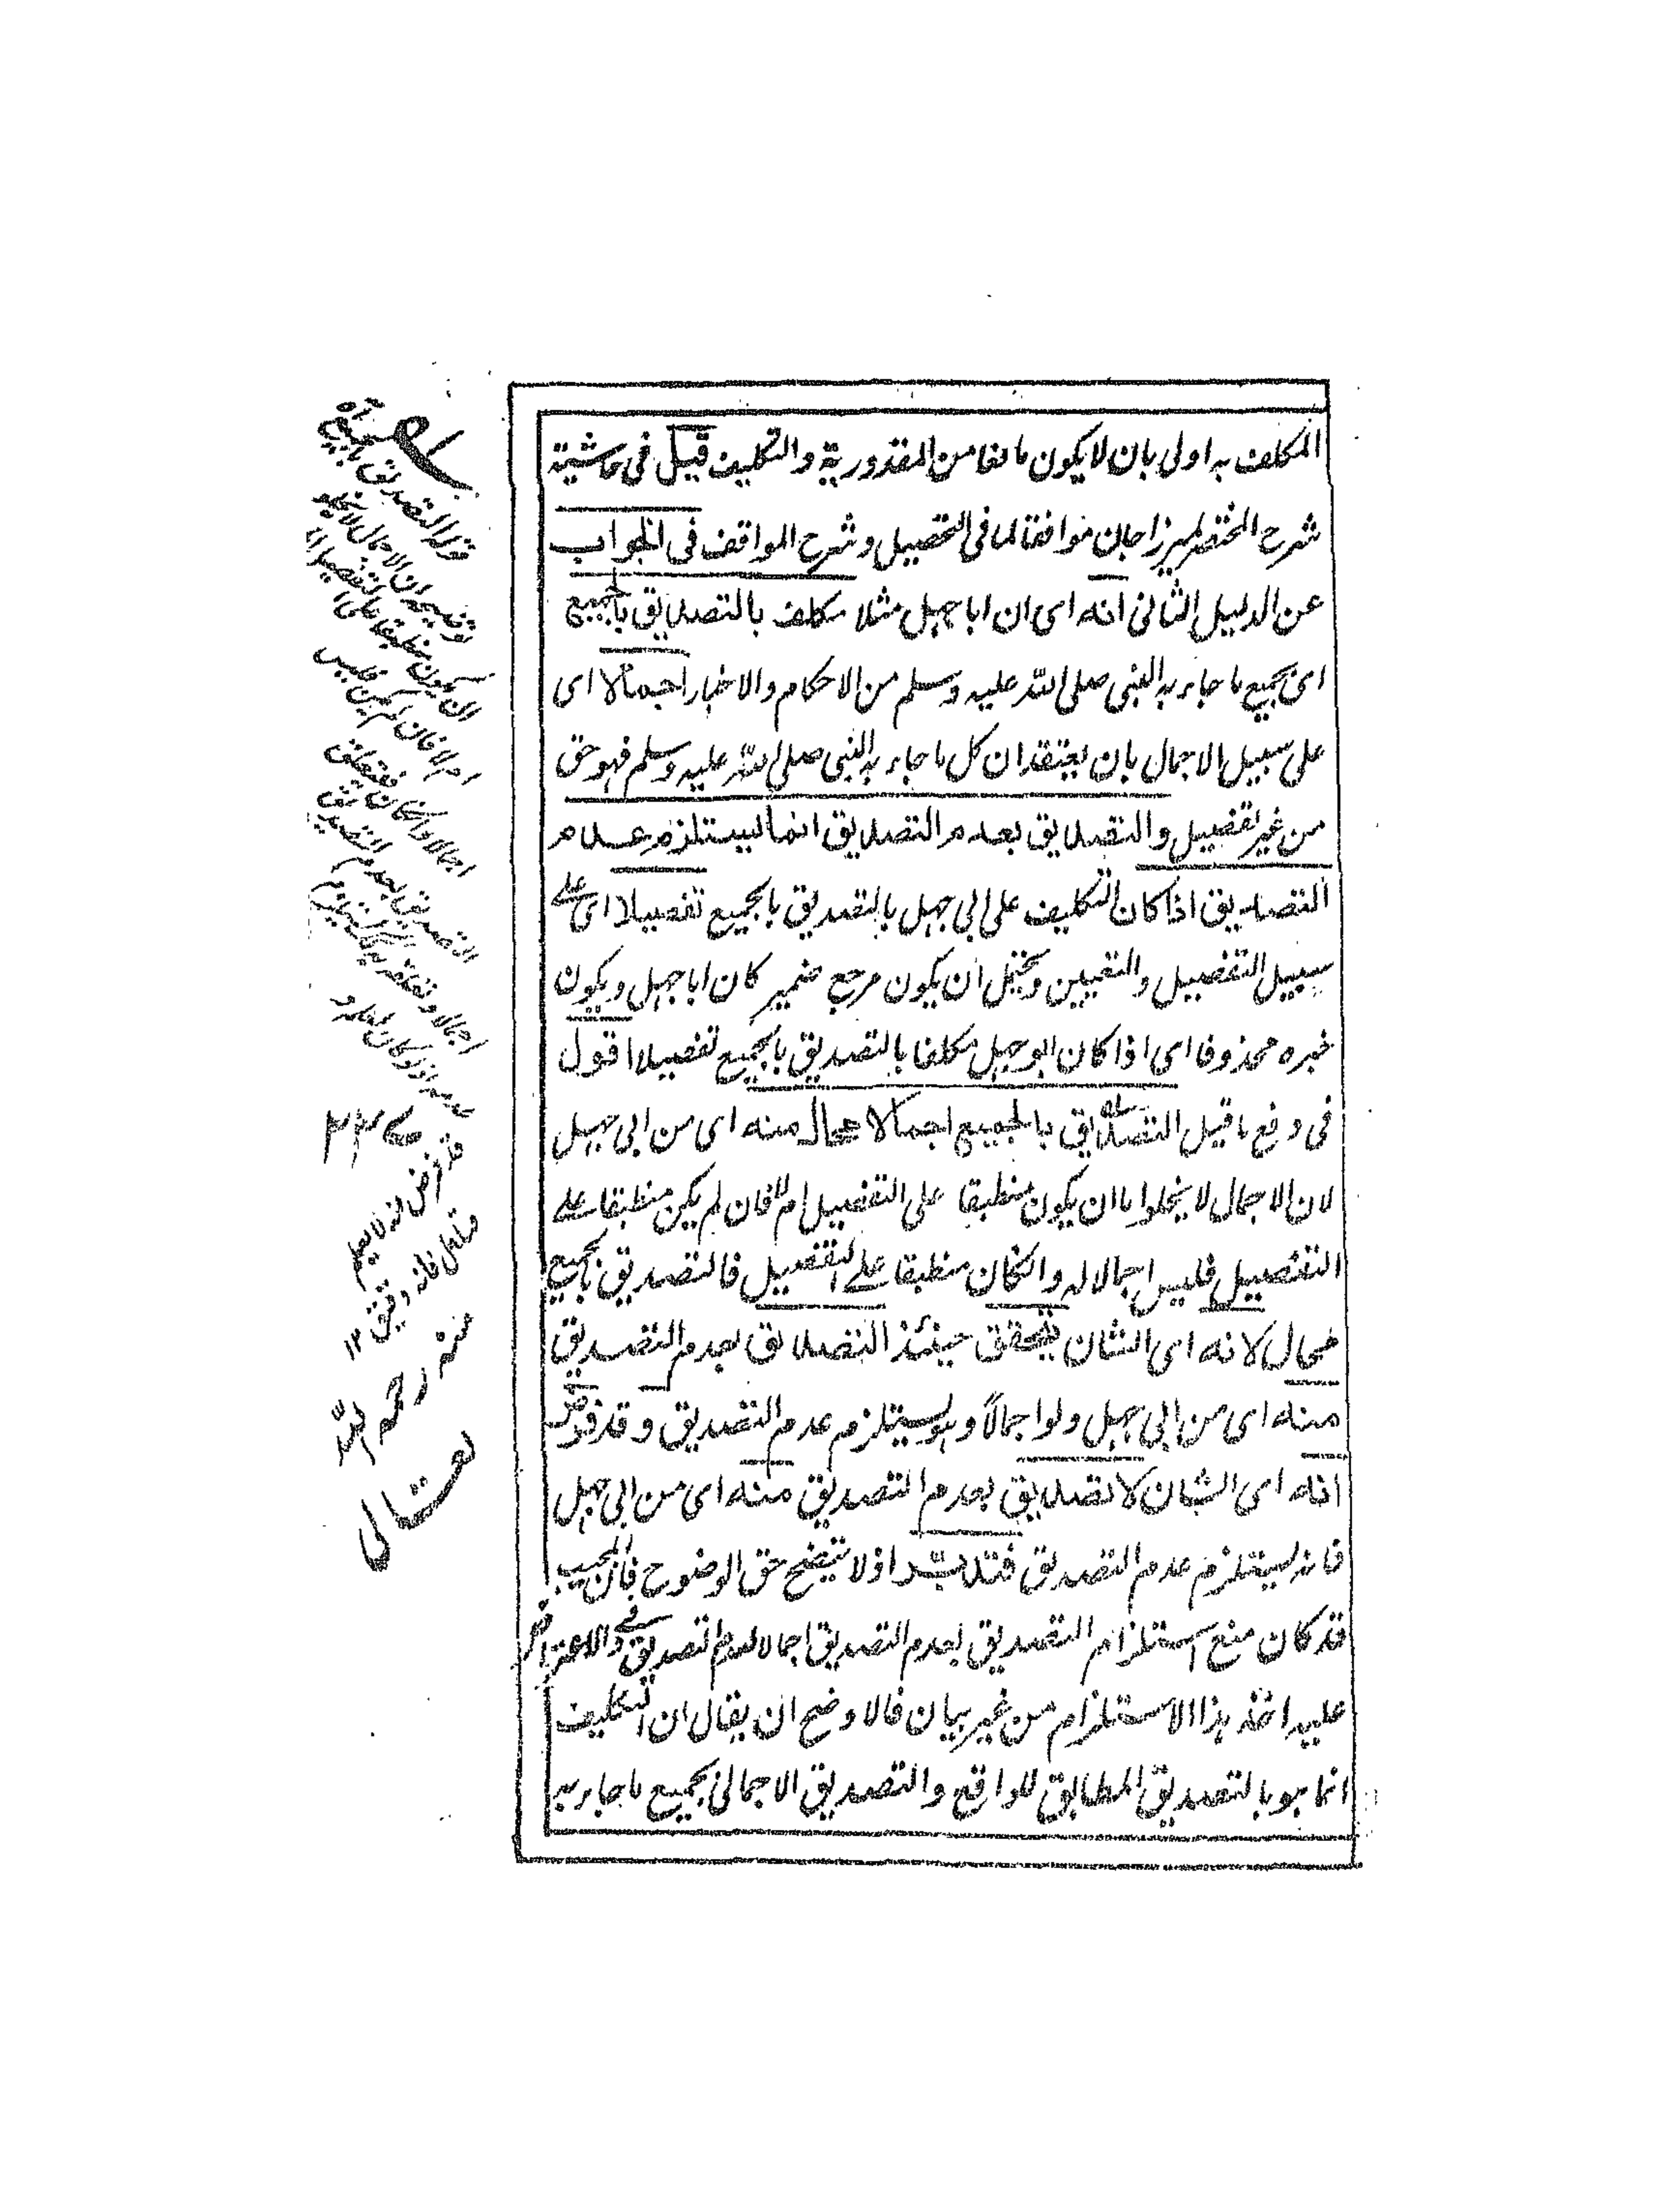 المكلف به اولى بان لا يكون مانعا من المقدورية والتكليف قيل فى حاشية
شرح المختصر لميرزا جان موافقا لما فى التحصيل وشرح المواقف فى الجواب
عن الدليل الثانى انه اى ان ابا جهل مثلا مكلف بالتصديق بالجميع
اى بجميع ما جاء به النبى صلى الله عليه وسلم من الاحكام والاخبار اجمالا اى
على سبيل الاجمال بان يعتقد ان كل ما جاء به النبى صلى الله عليه وسلم فهو حق
من غير تفصيل والتصديق بعدم التصديق انما يستلزم عدم
التصديق اذا كان التكليف على ابى جهل بالتصديق بالجميع تفصيلا اى على
سبيل التفصيل والتعيين ويحتمل ان يكون مرجع ضمير كان ابا جهل ويكون
خبره محذوفا اى اذا كان ابو جهل مكلفا بالتصديق بالجميع تفصيلا اقول
فى دفع ما قيل التصديق بالجميع اجمالا محال منه اى من ابى جهل
لان الاجمال لا يخلوا ما ان يكون منطبقا على التفصيل ام لا فان لم يكن منطبقا على
التفصيل فليس اجمالا له وانكان منطبقا على التفصيل فالتصديق بالجميع
محال لانه اى الشان يتحقق حينئذ التصديق بعدم التصديق
منه اى من ابى جهل ولو اجمالاً وهو يستلزم عدم التصديق وقد فرض
انه اى الشان لا تصديق بعدم التصديق منه اى من ابى جهل
فانه يستلزم عدم التصديق فتدبّر اذ لا يتضح حق الوضوح فان المجيب
قد كان منع استلزام التصديق بعدم التصديق اجمالا لعدم التصديق وفى الاعتراض
عليه اخذ هذا الاستلزام من غير بيان فالاوضح ان يقال ان التكليف
انما هو بالتصديق المطابق للواقع والتصديق الاجمالى بجميع ما جاء به
قوله التصديق بالجميع آه
توضيحه ان الاجمال لا يخلو
ان يكون منطبقا على التفصيل
ام لا فان لم يكن فليس
اجمالا وانكان فيتعلق
التصديق بعدم التصديق
اجمالا
فتامل فانه دقيق ١٢
منه رحمه الله
تعالى